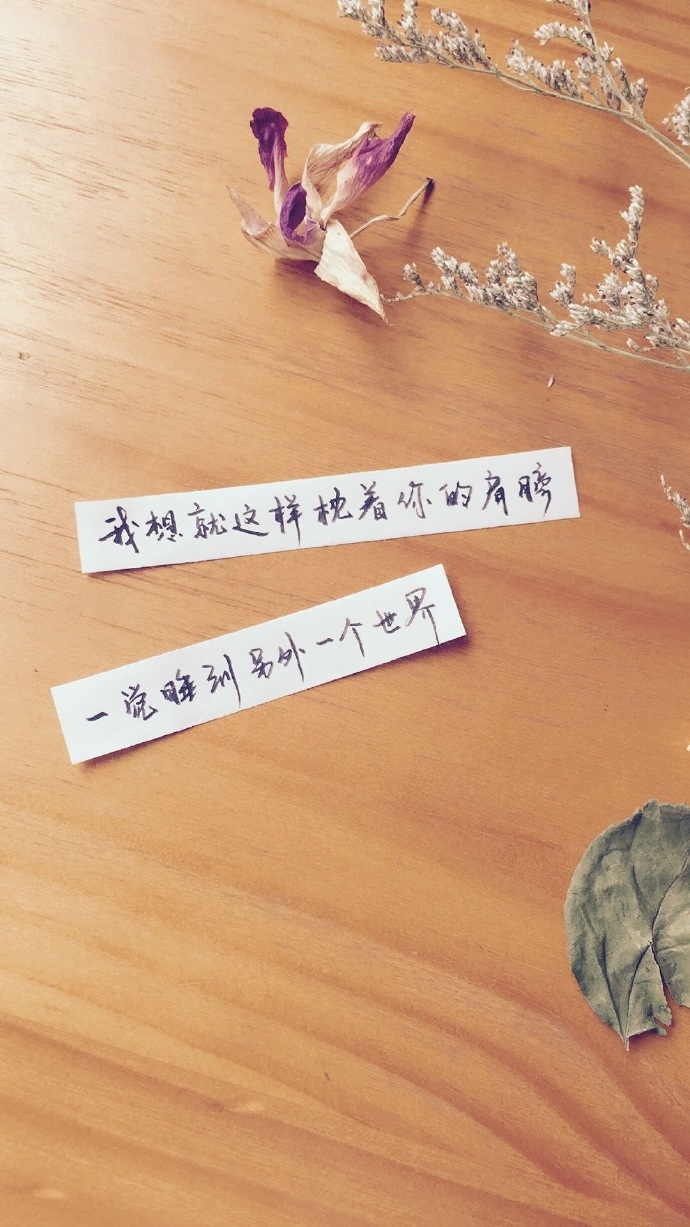 我想就这样枕着你的肩膀
一觉睡到另外一个世界